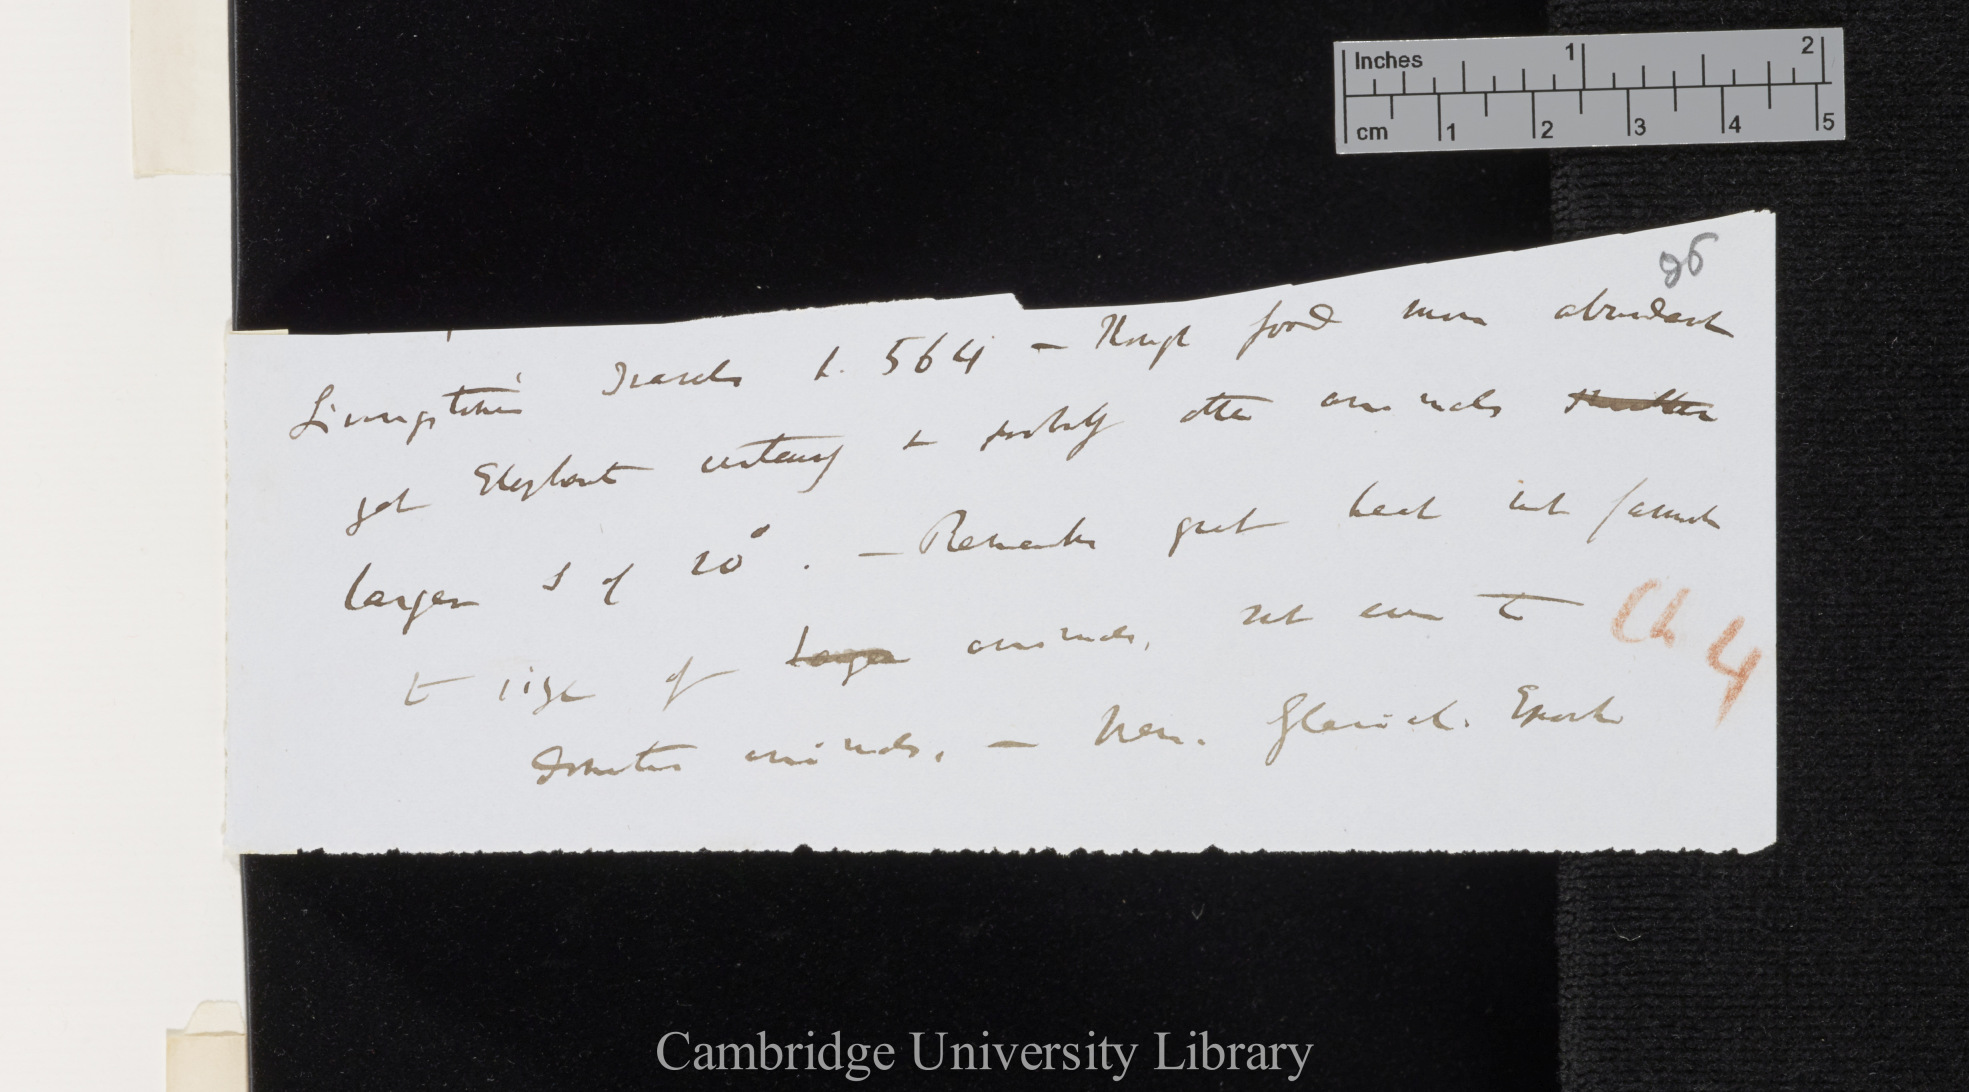 Inches 1 2
cm 1 2 3 4 5
86
Livingstone's Travels p. 564 – Though food more abundant
yet Elephant certainly & probably other animals smaller
larger S of 20°. – Remember great heat not favourable
to size of larger animals, not even to
domestic animals. – Mem. Glacial. Epoch
Ch 4
Cambridge University Library